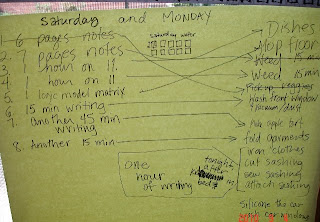 Saturday and MONDAY
1. 6 pages notes
2. 7 pages notes
3. 1 hour on 11
4. 1 hour on 11
5. 1 logic model matrix
6. 15 min writing
7. another 45 min
writing
8. Another 15 min
Saturday water
one
hour
of writing
tonight
after
Dishes
Mop floor
Weed 15 min
Weed 15 min
Pick up veggies
Wash front window
Pick apple tart
fold garments
iron clothes
cut sashing
sew sashing
attach sashing
silicone the car
wash car windows